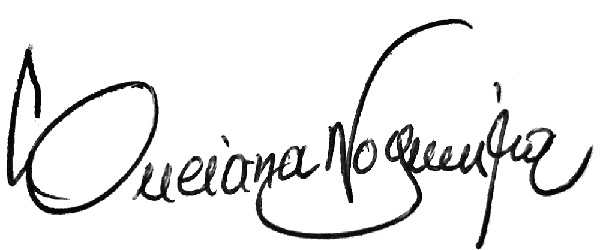 Luciana Nogueira